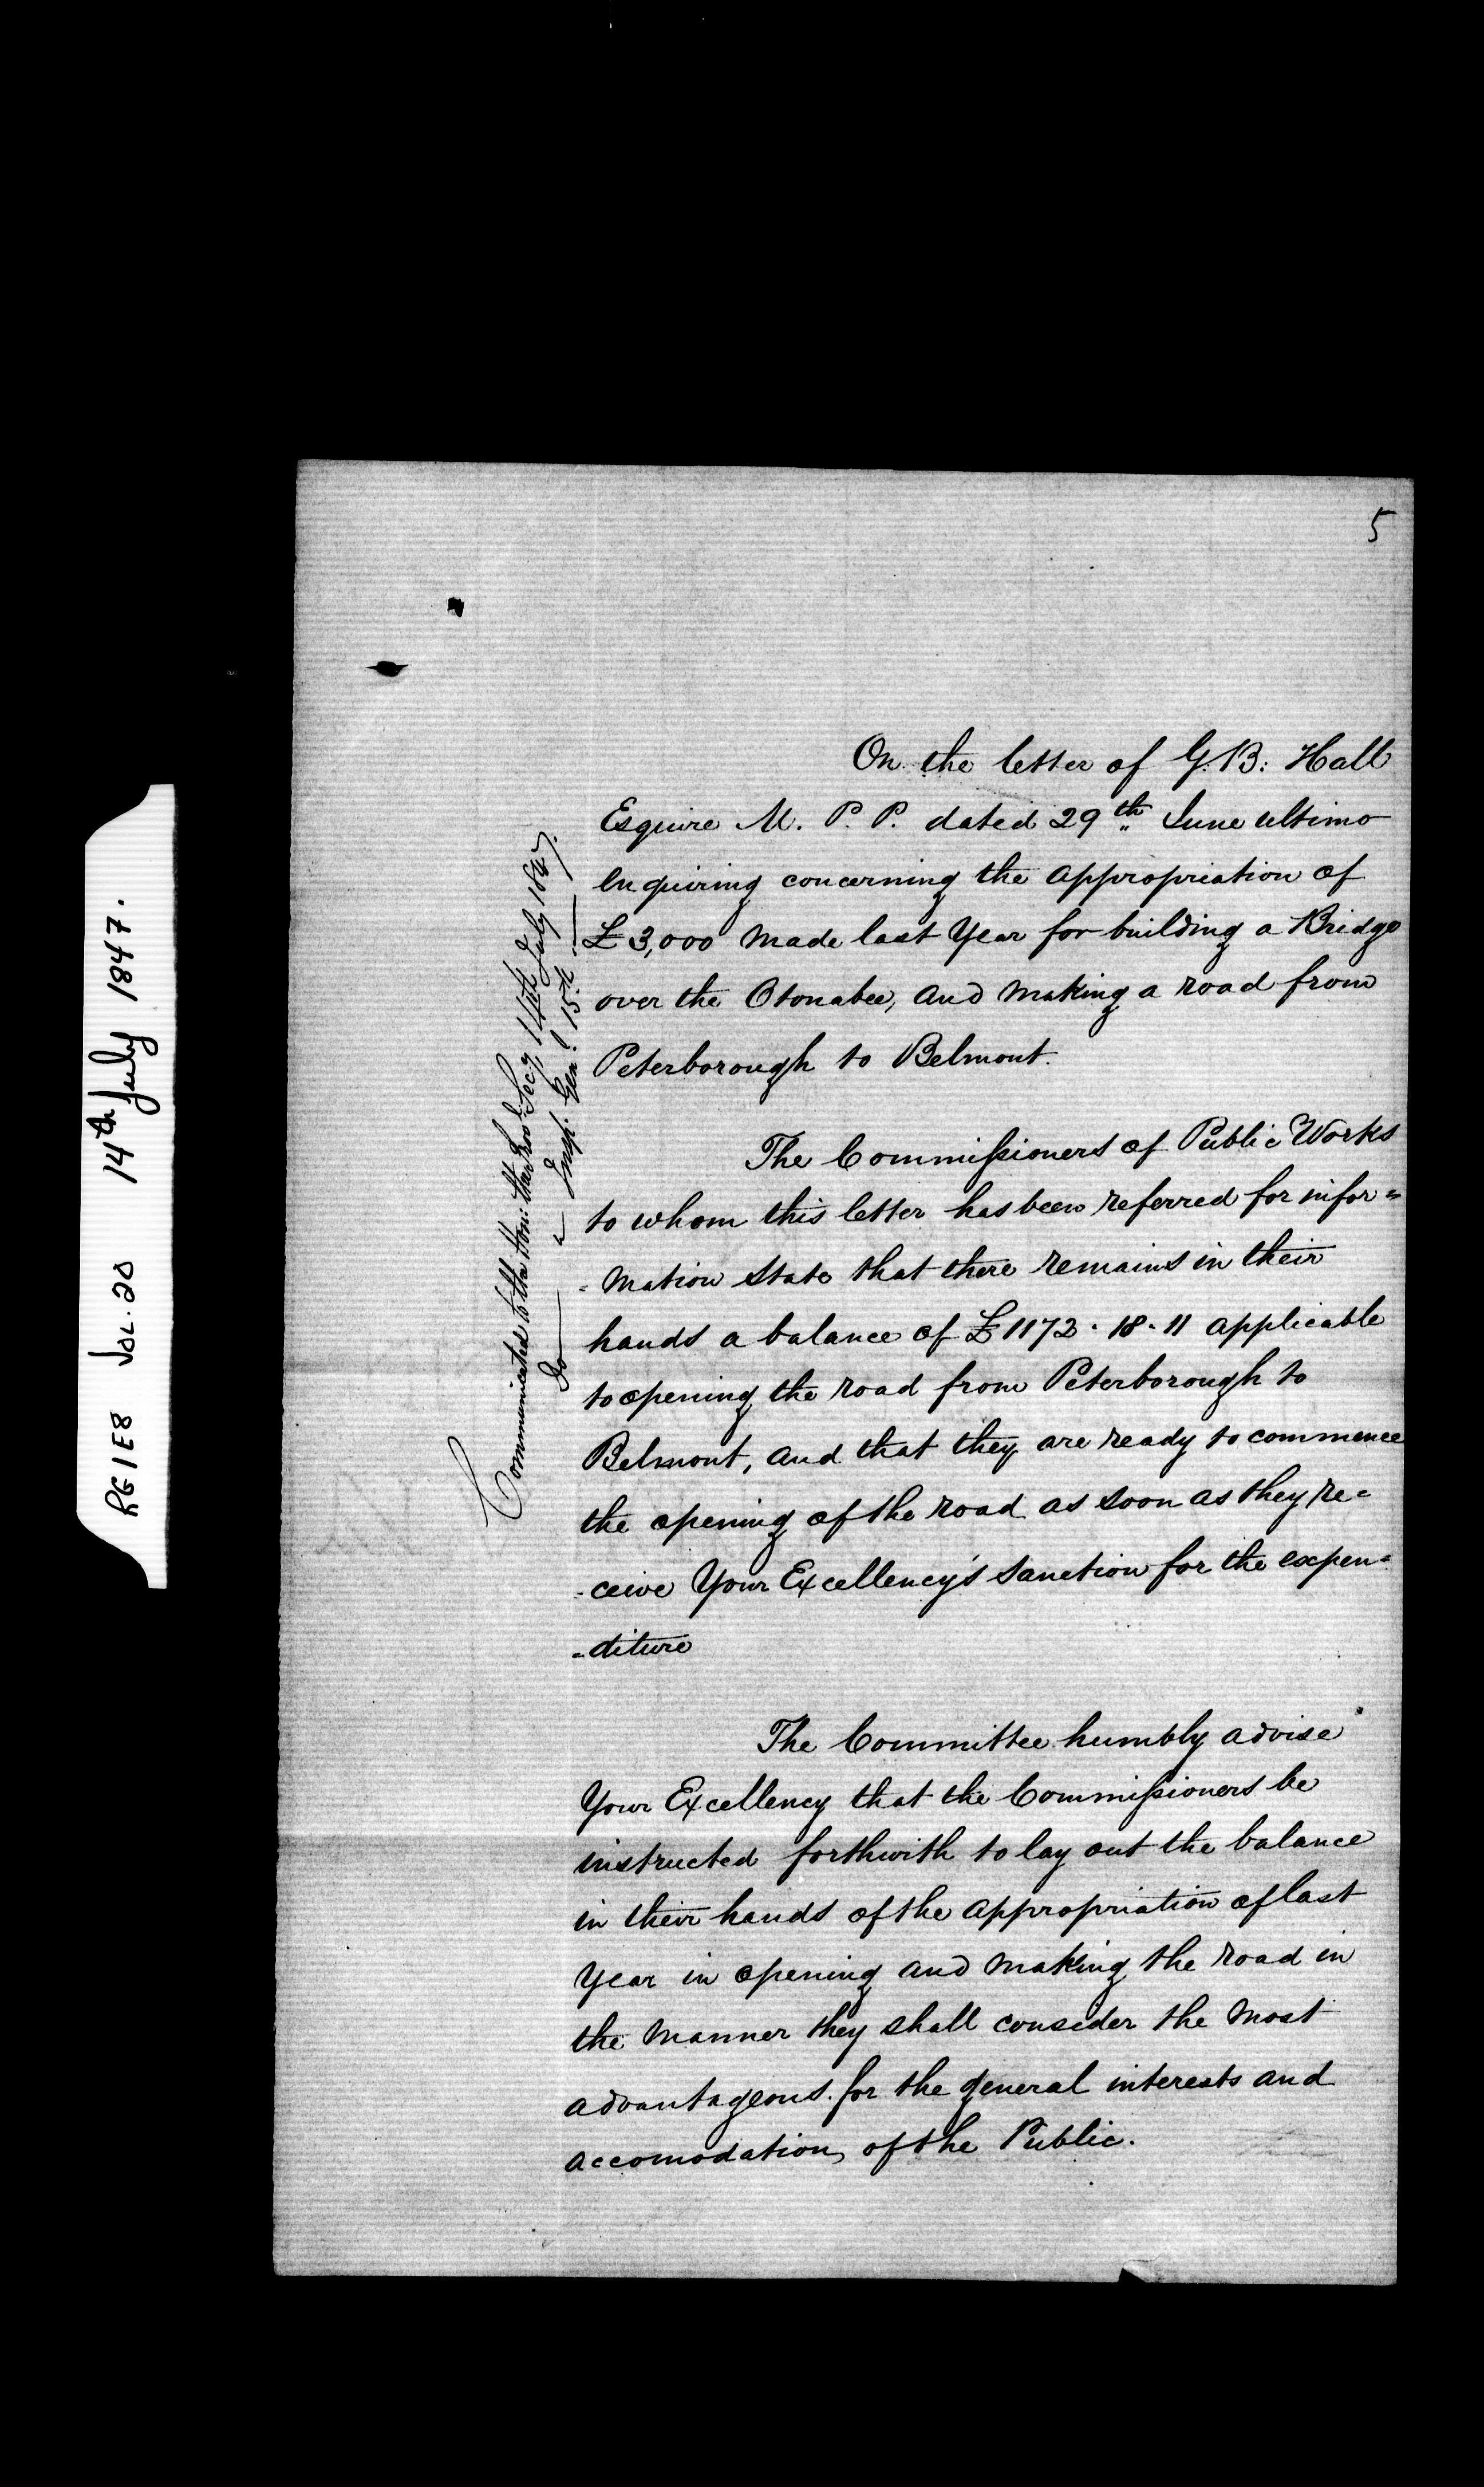 5
On the letter of G. B: Hall
Esquire M. P. P. dated 29th June ultimo
enquiring concerning the appropriation of
£3,000 made last Year for building a Bridge
over the Otonabee, and making a road from
Peterborough to Belmont.
The Commissioners of Public Works
to whom this letter has been referred for infor=
=mation state that there remains in their
hands a balance of £1173.18.11 applicable
to opening the road from Peterborough to
Belmont, and that they are ready to commence
the opening of the road as soon as they re=
=ceive Your Excellency's sanction for the expen=
=diture
The Committee humbly advise
Your Excellency that the Commissioners be
instructed forthwith to lay out the balance
in their hands of the appropriation of last
Year in opening and making the road in
the manner they shall consider the most
advantageous for the general interests and
accomodation, of the Public.
Communicated to the Hon: the Prov: Secy 14th July 1847.
Do — " Insp. Genl. 15th —
RG 1 E8 Vol. 20 14th July 1847.